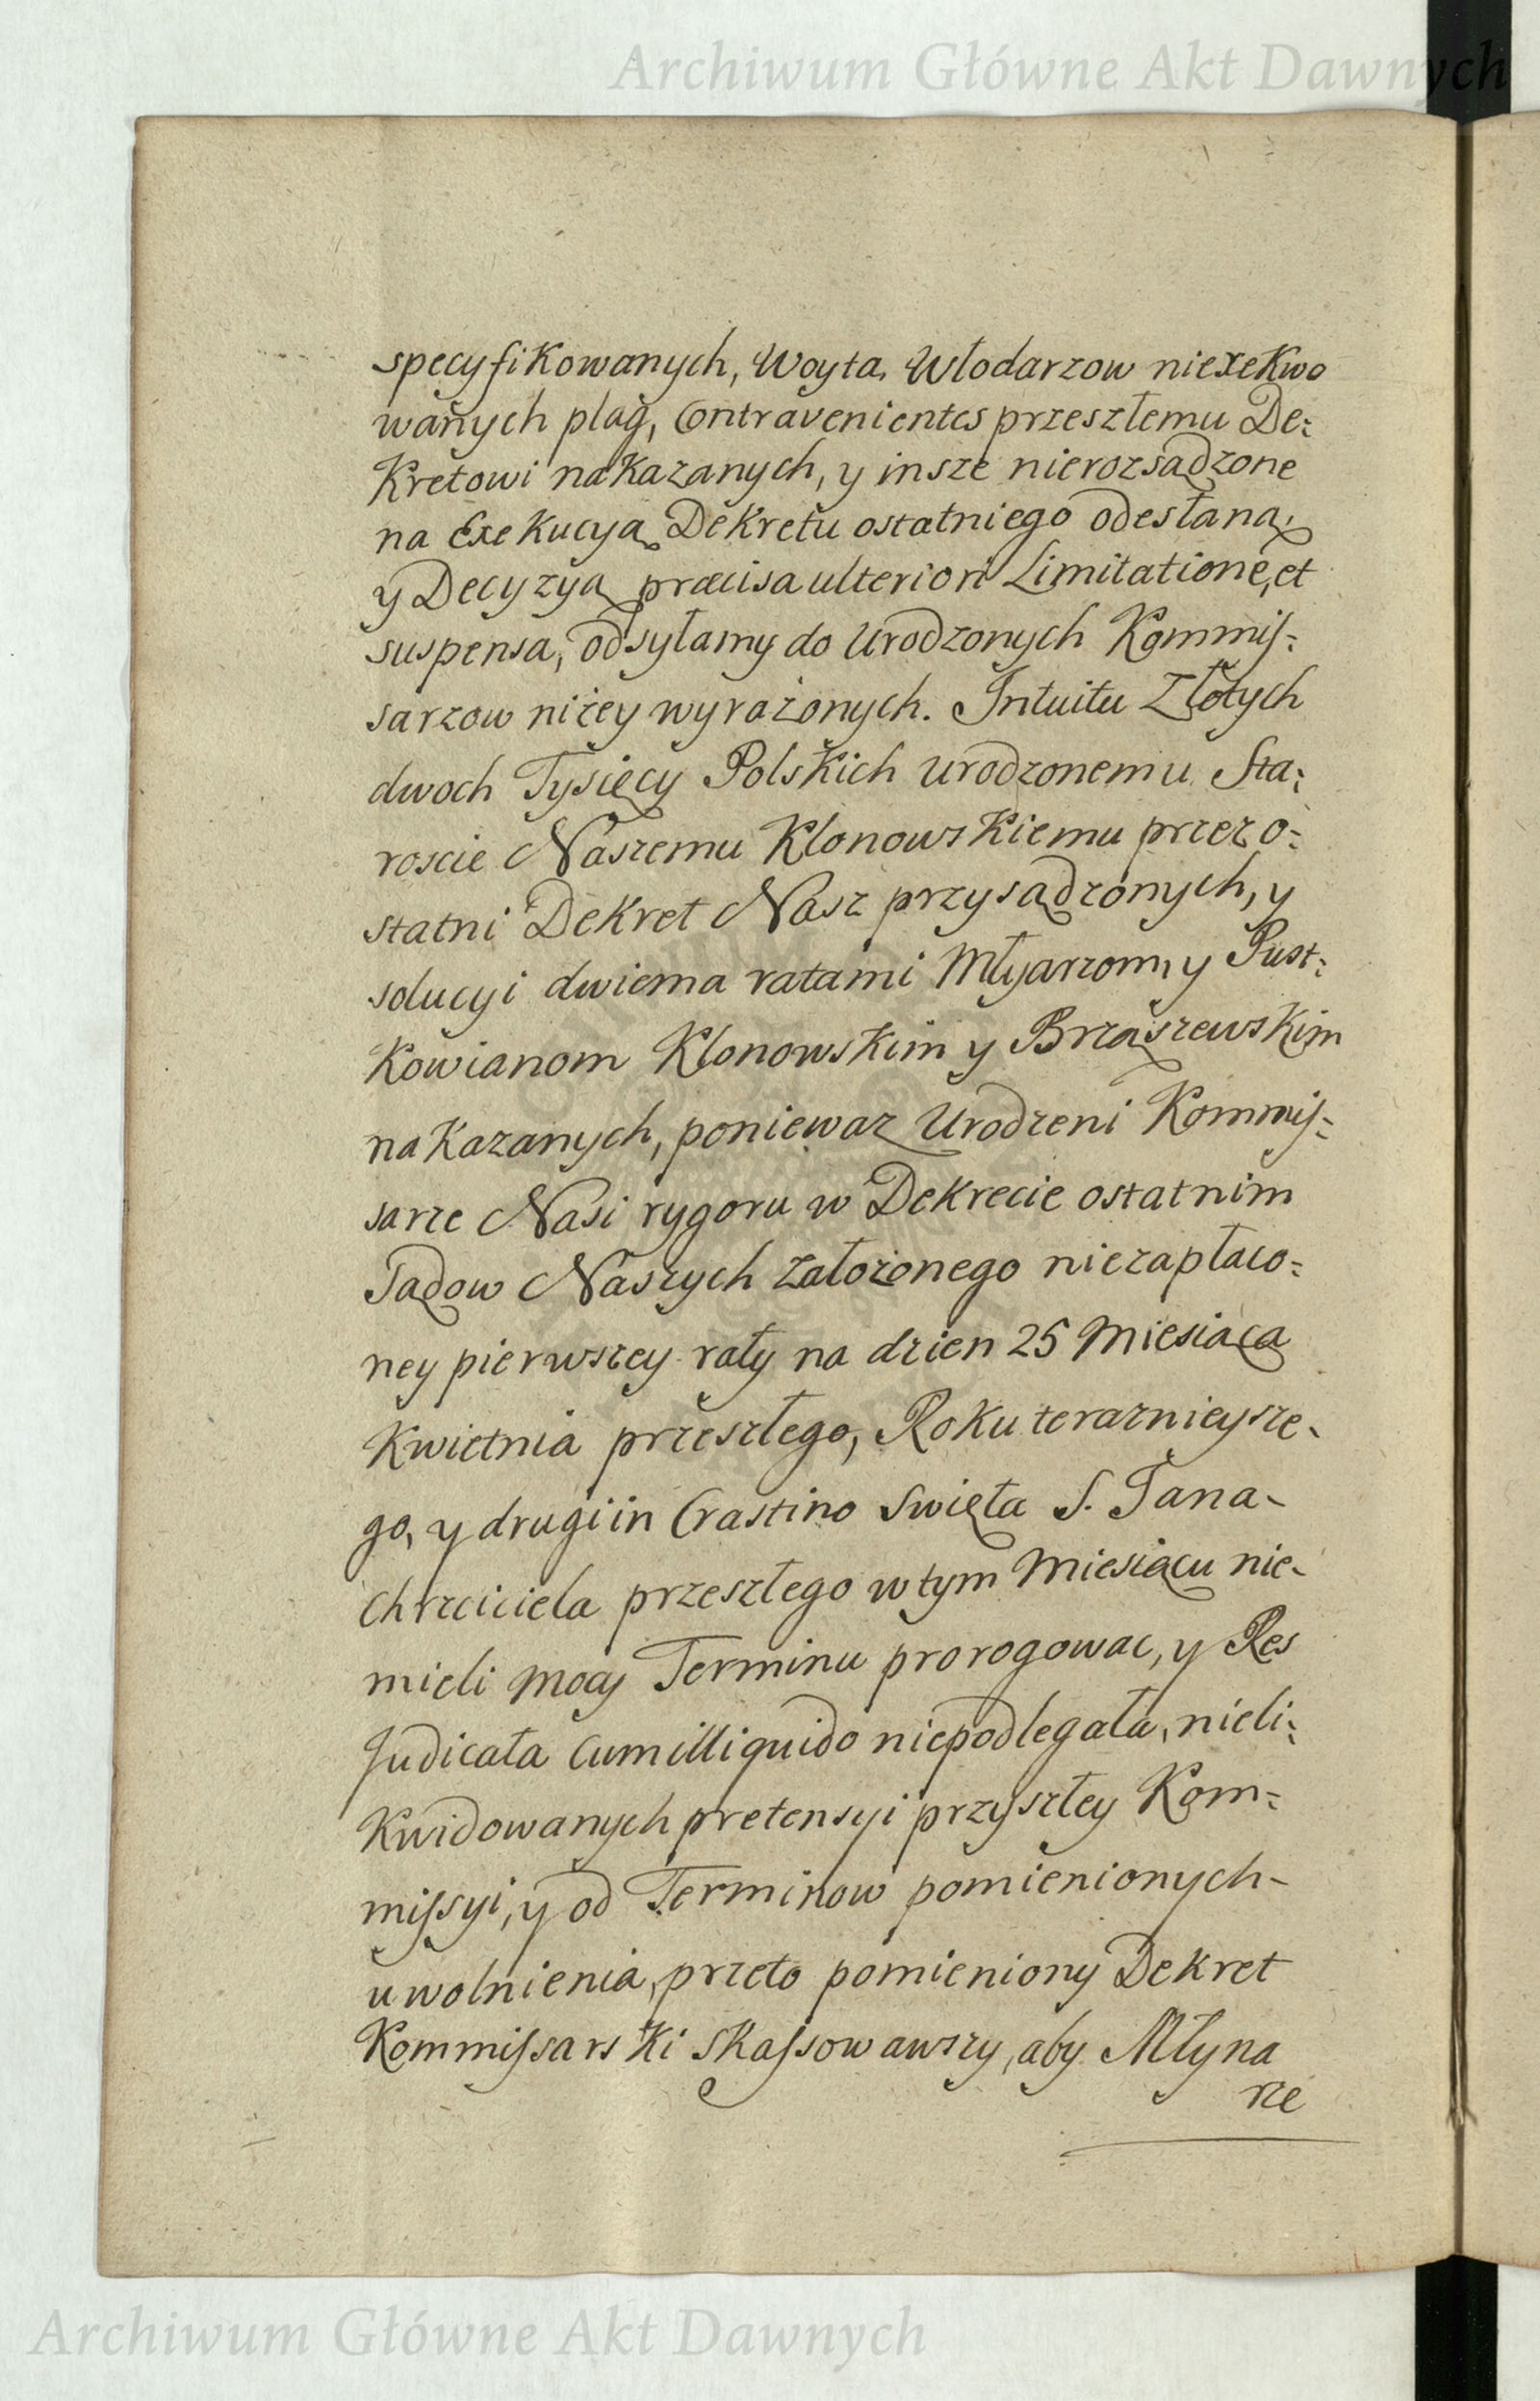 Archiwum Główne Akt Dawnych
specyfikowanych, Woyta, Włodarzow niexekwo
wanych plag, Contravenientes przeszłemu De:
kretowi nakazanych, y insze nierozsądzone
na Exekucyą Dekretu ostatniego odesłaną,
y Decyzyą præcisa ulteriori Limitatione, et
suspensa, odsyłamy do Urodzonych Kommis:
sarzow niżey wyrażonych. Intuitu Złotych
dwoch Tysięcy Polskich urodzonemu Sta:
roscie Naszemu Klonowskiemu przez o:
statni Dekret Nasz przysądzonych, y
solucyi dwiema ratami Młyarzom, y Pust:
kowianom Klonowskim y Brząszewskim
nakazanych, poniewaz Urodzeni Kommis:
sarze Nasi rygoru w Dekrecie ostatnim
Sądow Naszych załozonego niezapłaco:
ney pierwszey raty na dzien 25 Miesiąca
Kwietnia przeszłego, Roku terazniejsze-
go, y drugi in Crastino Swięta S. Jana-
Chrzciciela przeszłego w tym Miesiącu nie-
mieli mocy Terminu prorogowac, y Res
Judicata cum illiquido niepodlegała, nieli:
kwidowanych pretensyi przyszłey Kom:
missyi, y od Terminow pomienionych-
uwolnienia, przeto pomieniony Dekret
Kommissarski skassowawszy, aby Młyna
rze
Archiwum Główne Akt Dawnych